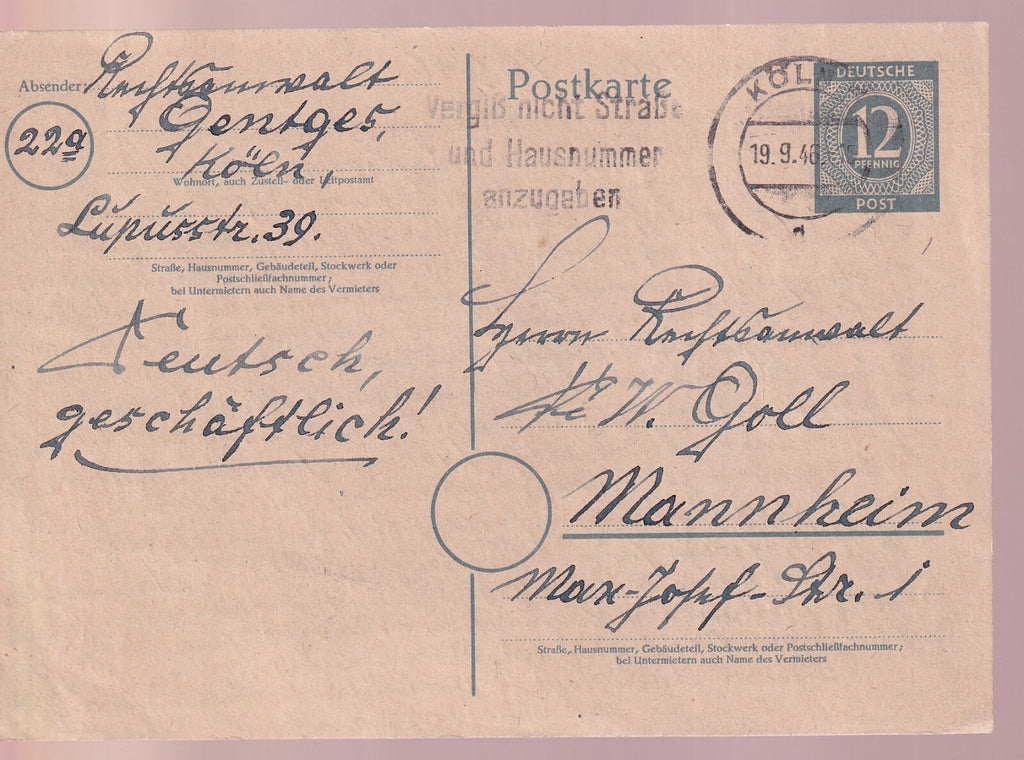 Absender
Rechtsanwalt
Gentges,
22a
Köln,
Wohnort, auch Zustell- oder Leitpostamt
Lupusstr. 39.
Straße, Hausnummer, Gebäudeteil, Stockwerk oder
Postschließfachnummer;
bei Untermietern auch Name des Vermieters
Deutsch,
geschäftlich!
Postkarte
Vergiß nicht Straße
und Hausnummer
anzugeben
KÖLN
19.9.46
a
DEUTSCHE
12
PFENNIG
POST
Herrn Rechtsanwalt
W. Goll
Mannheim
Max-Josef-Str. 1
Straße, Hausnummer, Gebäudeteil, Stockwerk oder Postschließfachnummer;
bei Untermietern auch Name des Vermieters